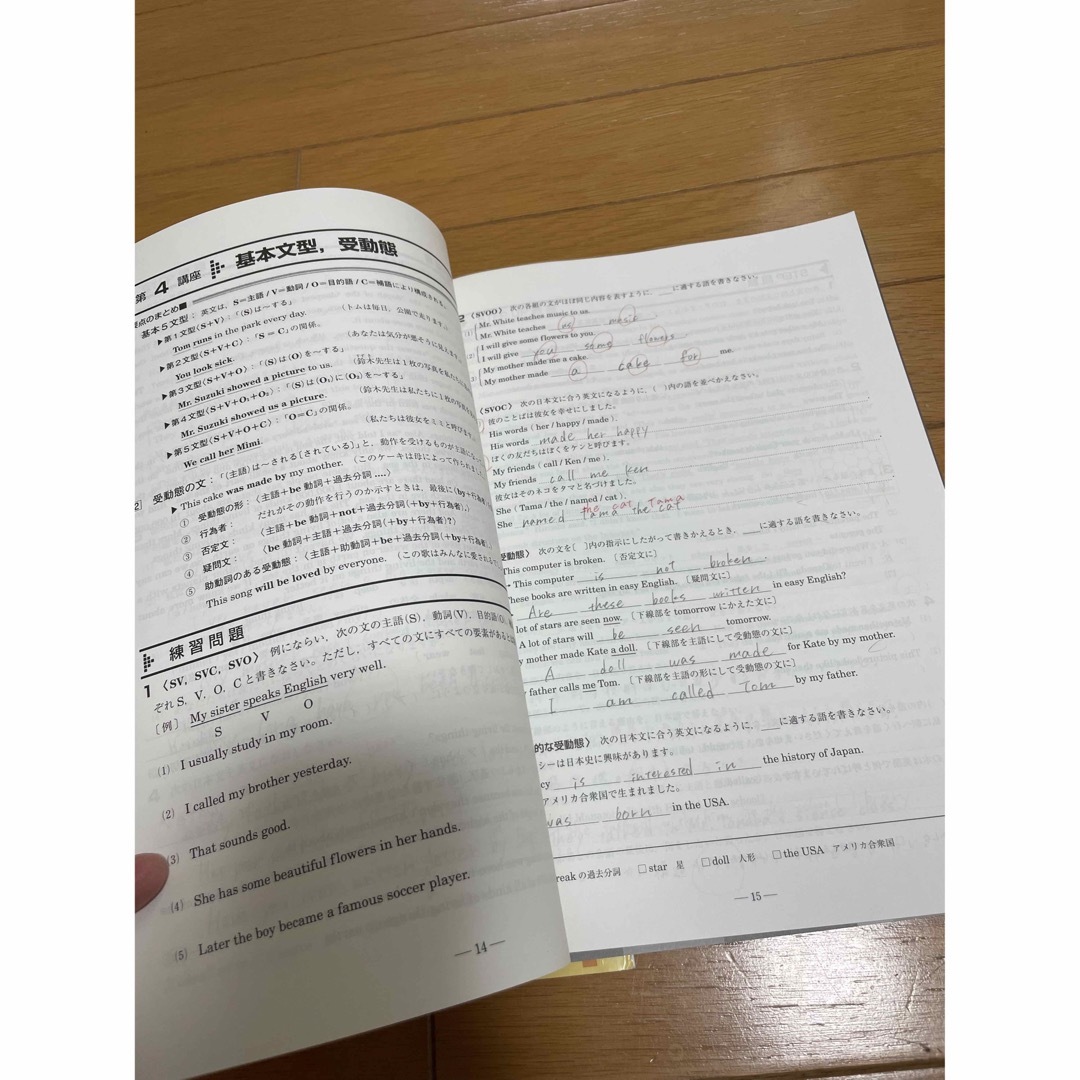 第4講座 基本文型，受動態
要点のまとめ■
基本5文型：英文は，S=主語 / V=動詞 / O=目的語 / C=補語により構成される。
▶第1文型〈S+V〉：「〈S〉は～する」
Tom runs in the park every day. （トムは毎日，公園で走ります。）
▶第2文型〈S+V+C〉：「S=C」の関係。
You look sick. （あなたは気分が悪そうに見えます
▶第3文型〈S+V+O〉：「〈S〉は〈O〉を～する」
Mr. Suzuki showed a picture to us. （鈴木先生は1枚の写真を私たちに
▶第4文型〈S+V+O₁+O₂〉：「〈S〉は〈O₁〉に〈O₂〉を～する」
Mr. Suzuki showed us a picture. （鈴木先生は私たちに1枚の写真を
▶第5文型〈S+V+O+C〉：「O=C」の関係。
We call her Mimi. （私たちは彼女をミミと呼びます
2] 受動態の文：「〈主語〉は～される[されている]」と，動作を受けるものが主語に
▶This cake was made by my mother. （このケーキは母によって作られま
① 受動態の形：〈主語+be動詞+過去分詞 ....〉
② 行為者： だれがその動作を行うのか示すときは，最後に〈by+行為
③ 否定文： 〈主語+be動詞+not+過去分詞(+by+行為者).〉
④ 疑問文： 〈be動詞+主語+過去分詞(+by+行為者)?〉
⑤ 助動詞のある受動態：〈主語+助動詞+be+過去分詞(+by+行為者).〉
This song will be loved by everyone. （この歌はみんなに愛され
練習問題
1 〈SV, SVC, SVO〉 例にならい，次の文の主語(S)，動詞(V)，目的語(O)
ぞれS，V，O，Cと書きなさい。ただし，すべての文にすべての要素があると
［例］ My sister speaks English very well.
S V O
(1) I usually study in my room.
(2) I called my brother yesterday.
(3) That sounds good.
(4) She has some beautiful flowers in her hands.
(5) Later the boy became a famous soccer player.
—14—
2 〈SVOO〉 次の各組の文がほぼ同じ内容を表すように，＿＿に適する語を書きなさい。
(1) Mr. White teaches music to us.
Mr. White teaches us music .
(2) I will give some flowers to you.
I will give you some flowers .
(3) My mother made me a cake.
My mother made a cake for me.
〈SVOC〉 次の日本文に合う英文になるように，( )内の語を並べかえなさい。
彼のことばは彼女を幸せにしました。
His words ( her / happy / made ).
His words made her happy
ぼくの友だちはぼくをケンと呼びます。
My friends ( call / Ken / me ).
My friends call me Ken
彼女はそのネコをタマと名づけました。
She ( Tama / the / named / cat ).
the cat Tama
She named Tama the cat
受動態〉 次の文を［ ］内の指示にしたがって書きかえるとき，＿＿に適する語を書きなさい。
This computer is broken. ［否定文に］
This computer is not broken .
hese books are written in easy English. ［疑問文に］
Are these books written in easy English?
lot of stars are seen now. ［下線部を tomorrow にかえた文に］
A lot of stars will be seen tomorrow.
y mother made Kate a doll. ［下線部を主語にして受動態の文に］
A doll was made for Kate by my mother.
y father calls me Tom. ［下線部を主語の形にして受動態の文に］
I am called Tom by my father.
的な受動態〉 次の日本文に合う英文になるように，＿＿に適する語を書きなさい。
シーは日本史に興味があります。
cy is interested in the history of Japan.
アメリカ合衆国で生まれました。
was born in the USA.
reakの過去分詞 □star 星 □doll 人形 □the USA アメリカ合衆国
—15—